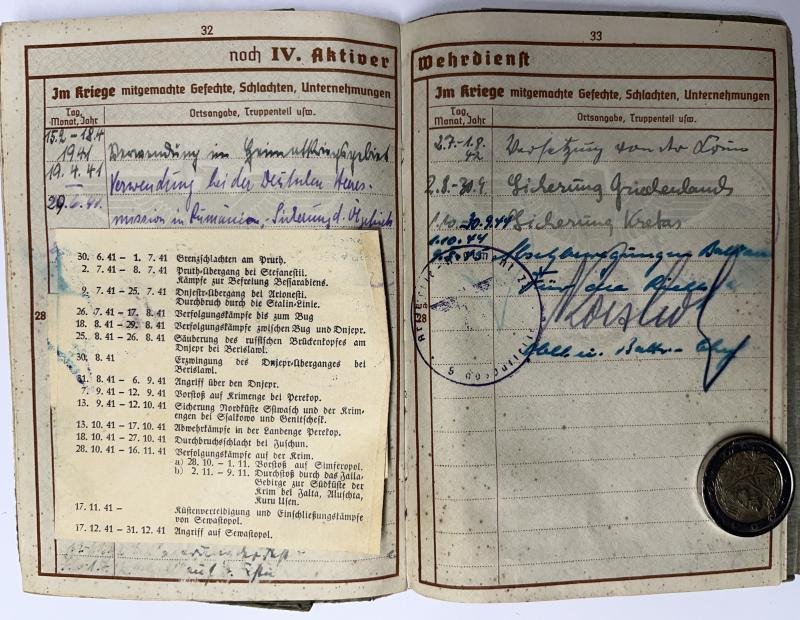 32
noch IV. Aktiver
Im Kriege mitgemachte Gefechte, Schlachten, Unternehmungen
Tag, Monat, Jahr
Ortsangabe, Truppenteil usw.
28
15.2 - 18.4
1941
Verwendung im Heimatkriegsgebiet
19.4.41
Verwendung bei der Deutschen Heeres-
mission in Rumänien, Sicherung d.
30. 6.41 – 1. 7.41 Grenzschlachten am Pruth.
2. 7.41 – 8. 7.41 Pruth-Übergang bei Stefanestii.
Kämpfe zur Befreiung Bessarabiens.
9. 7.41 – 25. 7.41 Dnjestr-Übergang bei Arionesti.
Durchbruch durch die Stalin-Linie.
26. 7.41 – 17. 8.41 Verfolgungskämpfe bis zum Bug
18. 8.41 – 29. 8.41 Verfolgungskämpfe zwischen Bug und Dnjepr.
25. 8.41 – 26. 8.41 Säuberung des russischen Brückenkopfes am
Dnjepr bei Berislawl.
30. 8.41 Erzwingung des Dnjepr-Überganges bei
Berislawl.
31. 8.41 – 6. 9.41 Angriff über den Dnjepr.
7. 9.41 – 12. 9.41 Vorstoß auf Krimenge bei Perekop.
13. 9.41 – 12. 10.41 Sicherung Nordküste Ssiwasch und der Krim-
engen bei Ssalkowo und Genitschesk.
13. 10.41 – 17. 10.41 Abwehrkämpfe in der Landenge Perekop.
18. 10.41 – 27. 10.41 Durchbruchsschlacht bei Juschun.
28. 10.41 – 16. 11.41 Verfolgungskämpfe auf der Krim.
a) 28. 10. – 1. 11. Vorstoß auf Simferopol.
b) 2. 11. – 9. 11. Durchstoß durch das Jaila-
Gebirge zur Südküste der
Krim bei Jalta, Aluschta,
Kuru Usen.
17. 11.41 – Küstenverteidigung und Einschließungskämpfe
von Sewastopol.
17. 12.41 – 31. 12.41 Angriff auf Sewastopol.
33
Wehrdienst
Im Kriege mitgemachte Gefechte, Schlachten, Unternehmungen
Tag, Monat, Jahr
Ortsangabe, Truppenteil usw.
28
2.7.-1.8.
42
Versetzung von der Krim
2.8.-30.9. Sicherung Griechenlands
1.10. 30.9.44 Sicherung Kretas
1.10.44
Absetzbewegungen Balkan
Für die Richtigkeit